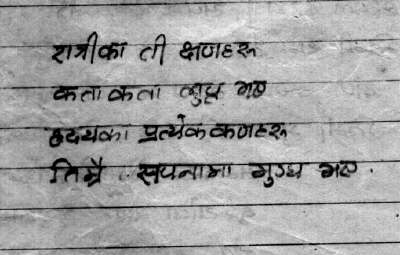 रात्रीका ती क्षणहरू
कता कता लुप्त भए
हृदयका प्रत्येक कणहरू
तिम्रै सपनामा मुग्ध भए.